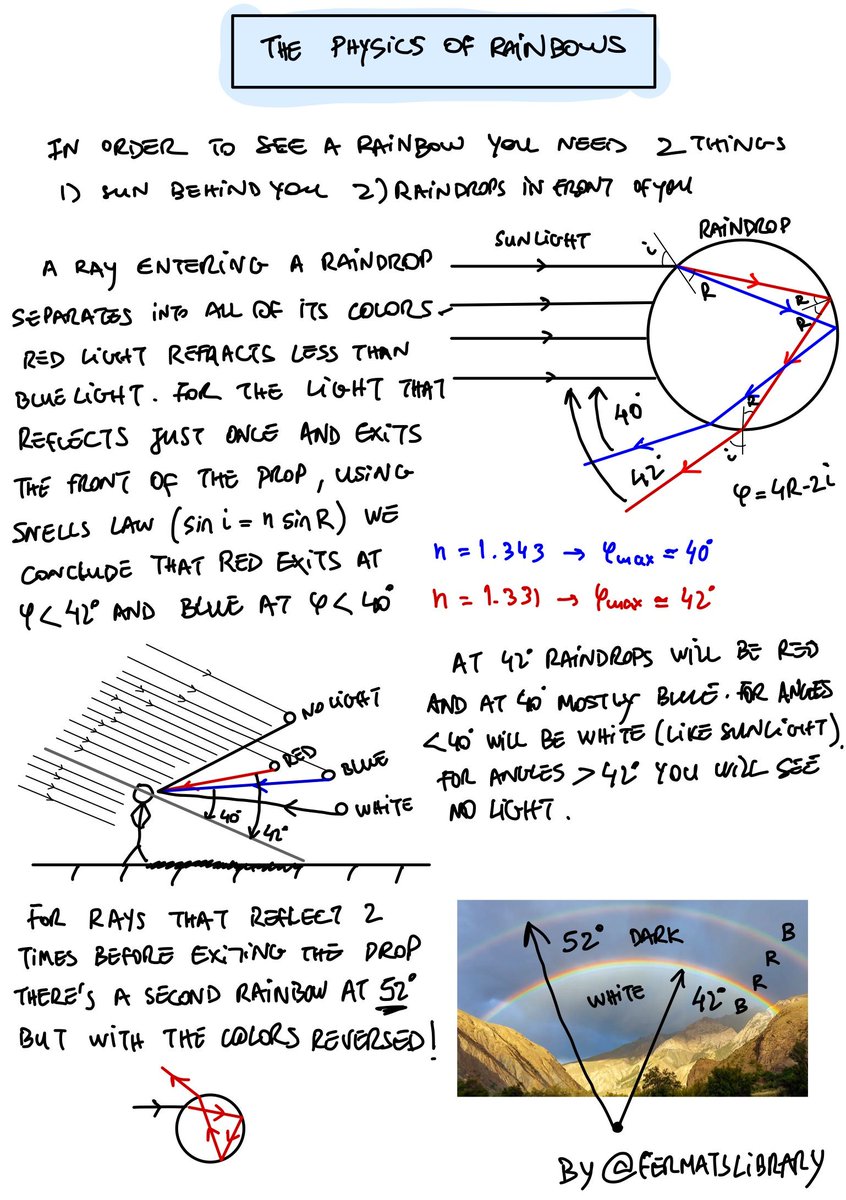 THE PHYSICS OF RAINBOWS
IN ORDER TO SEE A RAINBOW YOU NEED 2 THINGS
1) SUN BEHIND YOU 2) RAINDROPS IN FRONT OF YOU
A RAY ENTERING A RAINDROP
SEPARATES INTO ALL OF ITS COLORS.
RED LIGHT REFRACTS LESS THAN
BLUE LIGHT. FOR THE LIGHT THAT
REFLECTS JUST ONCE AND EXITS
THE FRONT OF THE DROP, USING
SNELLS LAW (sin i = n sin R) WE
CONCLUDE THAT RED EXITS AT
φ < 42° AND BLUE AT φ < 40°
SUNLIGHT
RAINDROP
i
R
R
R
R
i
40°
42°
φ = 4R - 2i
n = 1.343 → φmax ≃ 40°
n = 1.331 → φmax ≃ 42°
NO LIGHT
RED
BLUE
WHITE
40°
42°
AT 42° RAINDROPS WILL BE RED
AND AT 40° MOSTLY BLUE. FOR ANGLES
< 40° WILL BE WHITE (LIKE SUNLIGHT).
FOR ANGLES > 42° YOU WILL SEE
NO LIGHT.
FOR RAYS THAT REFLECT 2
TIMES BEFORE EXITING THE DROP
THERE'S A SECOND RAINBOW AT 52°
BUT WITH THE COLORS REVERSED!
52° DARK
B
R
R
B
WHITE
42°
BY @FERMATSLIBRARY